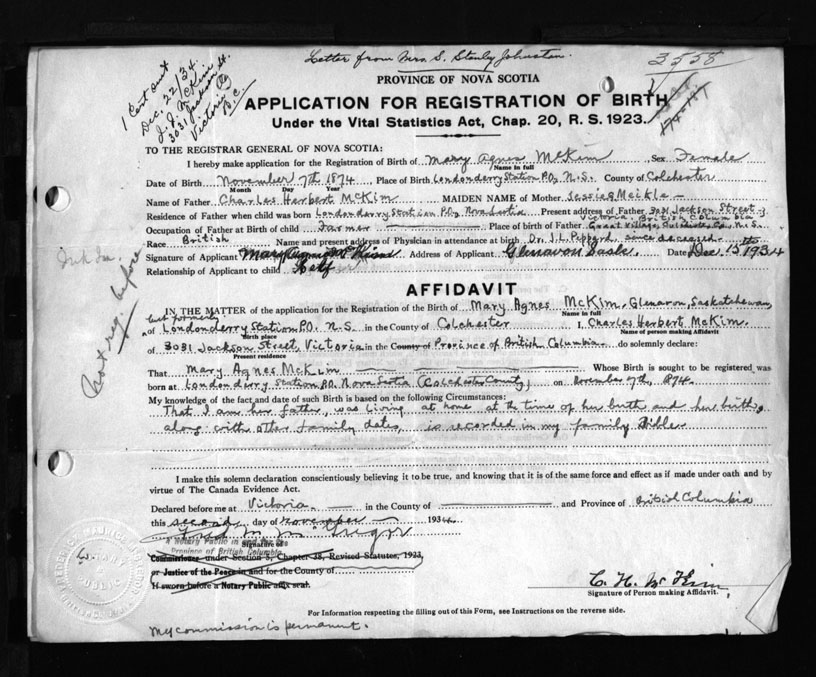 Letter from Mrs. S. Stanly Johnston.
3558
1 Cert sent
Dec. 22/34
J. J. McKim
3031 Jackson St.
Victoria
B.C.
PROVINCE OF NOVA SCOTIA
APPLICATION FOR REGISTRATION OF BIRTH
Under the Vital Statistics Act, Chap. 20, R. S. 1923.
TO THE REGISTRAR GENERAL OF NOVA SCOTIA:
I hereby make application for the Registration of Birth of Mary Agnes McKim, Sex Female
Name in full
Date of Birth November 7th 1874, Place of Birth Londonderry Station P.O., N.S. County of Colchester
Month Day Year
Name of Father Charles Herbert McKim MAIDEN NAME of Mother Jessie Meikle
Residence of Father when child was born Londonderry Station P.O., Nova Scotia Present address of Father 3031 Jackson Street,
Victoria, British Columbia
Occupation of Father at Birth of child Farmer Place of birth of Father Great Village, Co., N.S.
Race British Name and present address of Physician in attendance at birth Dr. J. L. Peppard, since deceased.
Signature of Applicant Mary McKim Address of Applicant Glenavon Sask. Date Dec. 15th 1934
Relationship of Applicant to child Self
Not reg. before
AFFIDAVIT
IN THE MATTER of the application for the Registration of the Birth of Mary Agnes McKim, Glenavon, Saskatchewan,
Name in full
but formerly
of Londonderry Station P.O. N.S. in the County of Colchester I, Charles Herbert McKim.
Birth place Name of person making Affidavit
of 3031 Jackson Street, Victoria in the County of Province of British Columbia do solemnly declare:
Present residence
That Mary Agnes McKim Whose Birth is sought to be registered was
born at Londonderry Station P.O. Nova Scotia (Colchester County) on November 7th, 1874.
My knowledge of the fact and date of such Birth is based on the following Circumstances:
That I am her father, was living at home at the time of her birth and her birth,
along with other family dates, is recorded in my family Bible
I make this solemn declaration conscientiously believing it to be true, and knowing that it is of the same force and effect as if made under oath and by
virtue of The Canada Evidence Act.
Declared before me at Victoria. in the County of and Province of British Columbia
this second day of November 1934
Signature of
A Notary Public in and for the
Province of British Columbia
Commissioner under Section 8, Chapter 38, Revised Statutes, 1923,
or Justice of the Peace in and for the County of
If sworn before a Notary Public affix seal.
C. H. McKim
Signature of Person making Affidavit.
NOTARY
PUBLIC
For Information respecting the filling out of this Form, see Instructions on the reverse side.
My commission is permanent.